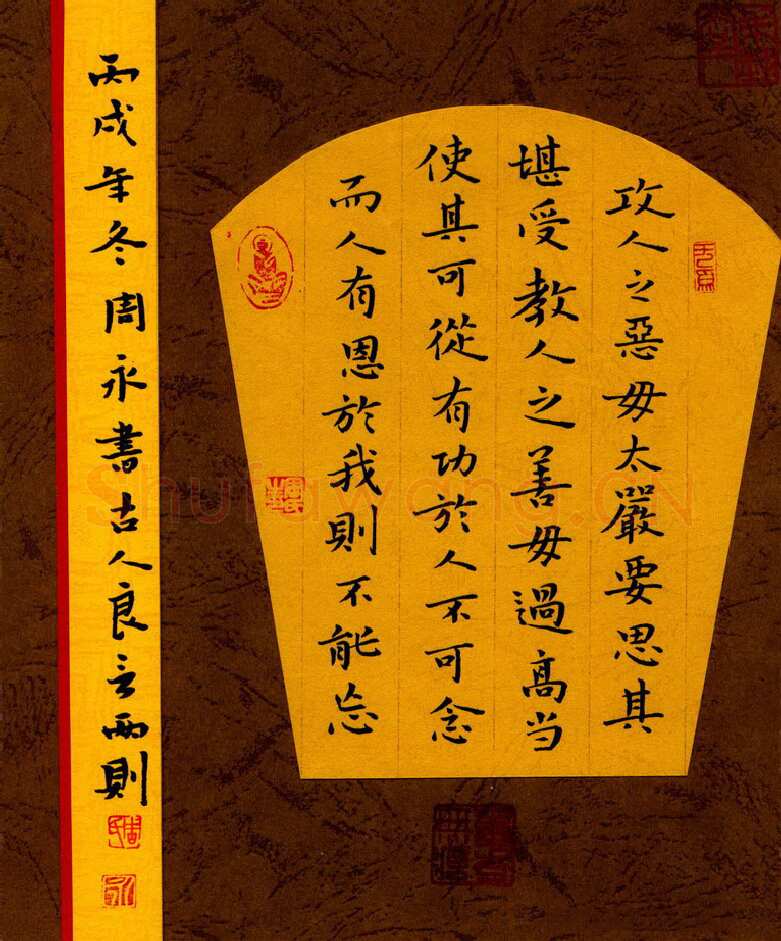 攻人之惡毋太嚴要思其
堪受教人之善毋過高当
使其可從有功於人不可念
而人有恩於我則不能忘
丙戌年冬周永書古人良言兩則
Shufawang.CN